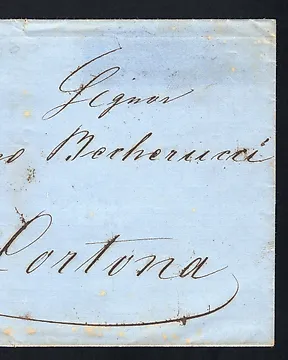 Signor
no Becherucci
Cortona